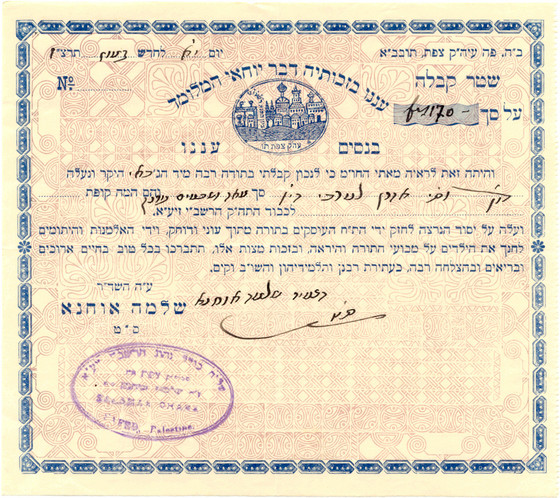 ב"ה. פה עיה"ק צפת, תובב"א יום לחדש תרצ"
שטר קבלה
№
עננו בזכותיה דבר יוחאי המלומד
על סך 1170-
עה"ק צפת תו
בנסים עננו
והיתה זאת לראיה מאתי החו"מ כי לנכון קבלתי בתודה רבה מיד הג' היקר ונעלה
סך והם המה קופת
לכבוד התה"ק הרשב"י זיע"א.
ועלה על יסוד הנרצה לחזק ידי הת"ח העוסקים בתורה מתוך עוני ודוחק, וידי האלמנות והיתומים
לחנך את הילדים על מבועי התורה והיראה, ובזכות מצות אלו, תתברכו בכל טוב בחיים ארוכים
ובריאים ובהצלחה רבה, כעתירת רבנן ותלמידיהון והשו"ב וקים.
ע"ה השד"ר
שלמה אוחנא
ס"ט
שלמה אוחנא
ס"ט
SALAMAH OHANA
SAFED, Palestine